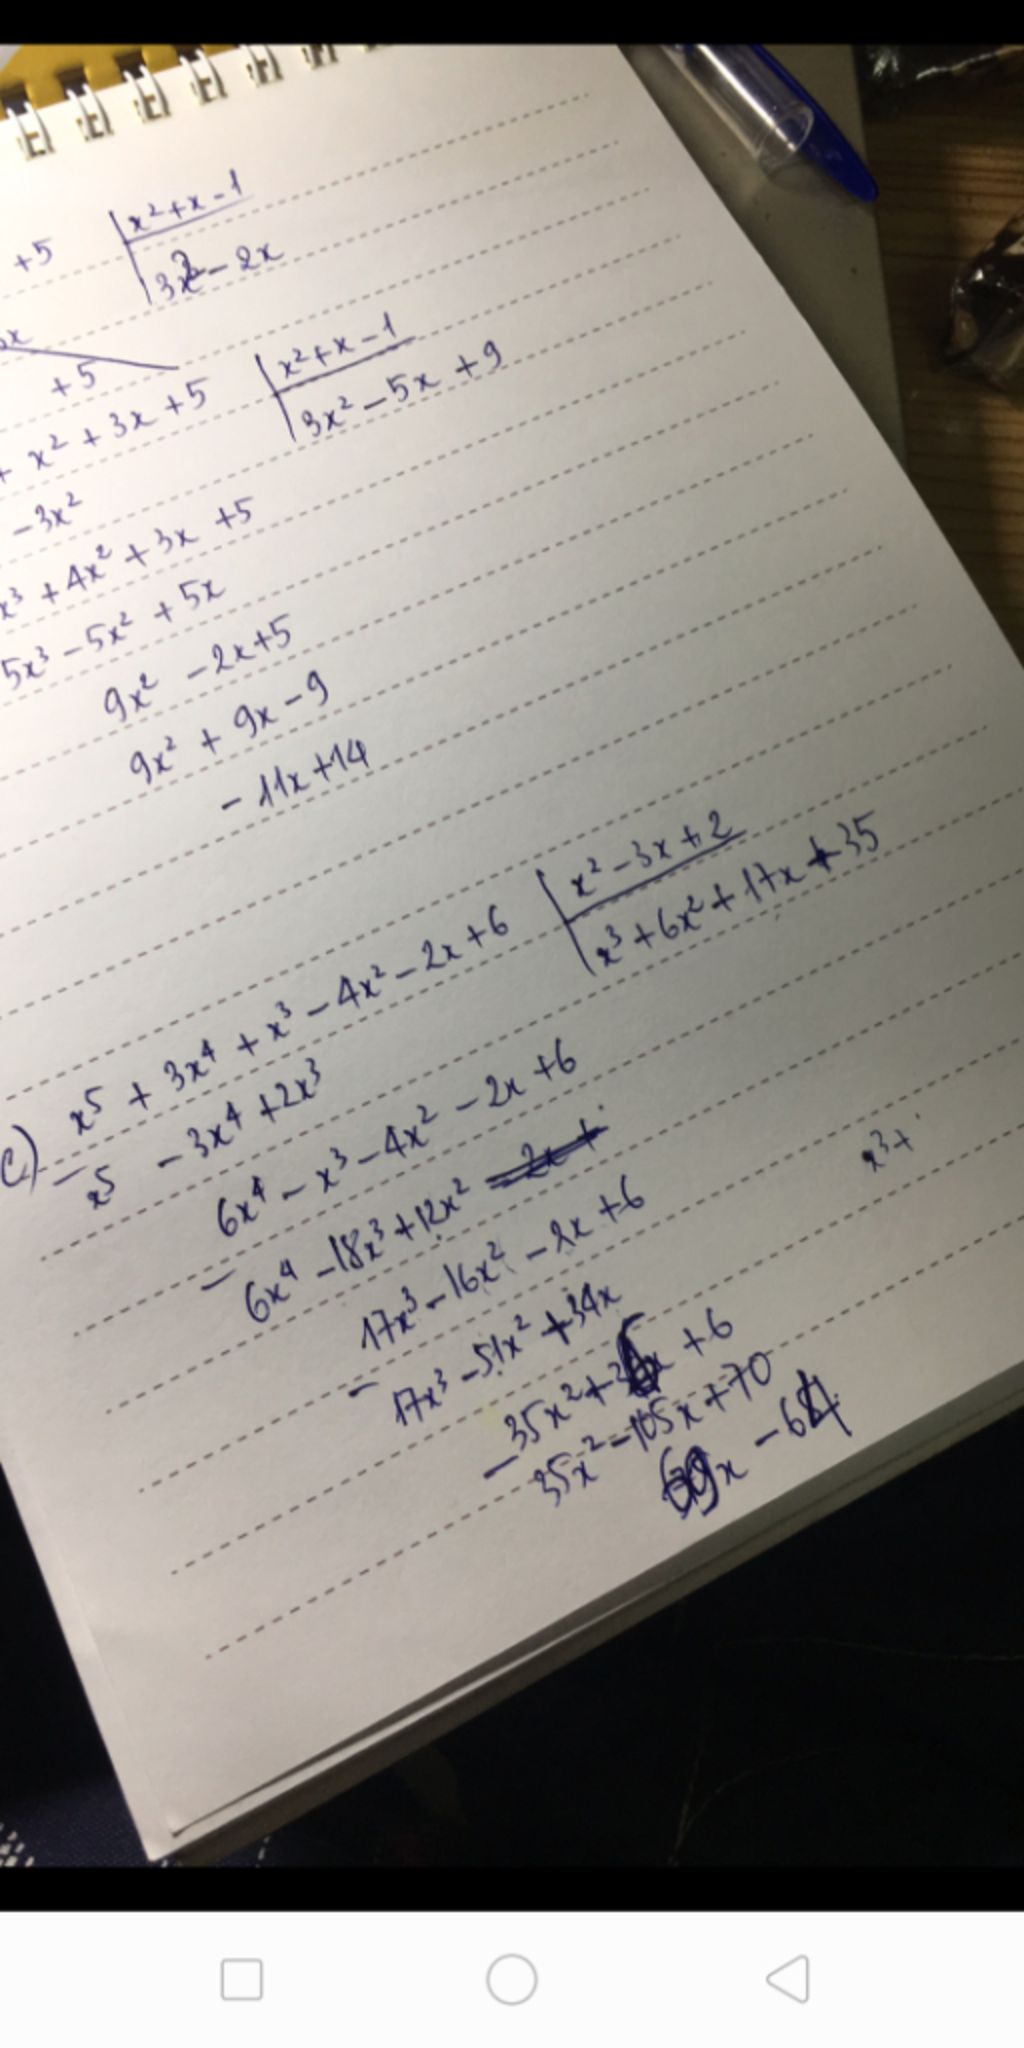 +5 | x² + x - 1
3x² - 2x
+5
+ x² + 3x + 5 | x² + x - 1
3x² - 5x + 9
- 3x²
x³ + 4x² + 3x + 5
5x³ - 5x² + 5x
9x² - 2x + 5
9x² + 9x - 9
- 11x + 14
c) x⁵ + 3x⁴ + x³ - 4x² - 2x + 6 | x² - 3x + 2
x³ + 6x² + 17x + 35
- x⁵ - 3x⁴ + 2x³
6x⁴ - x³ - 4x² - 2x + 6
- 6x⁴ - 18x³ + 12x²
x³ +
17x³ - 16x² - 2x + 6
- 17x³ - 51x² + 34x
35x² + x + 6
- 35x² - 105x + 70
69x - 64